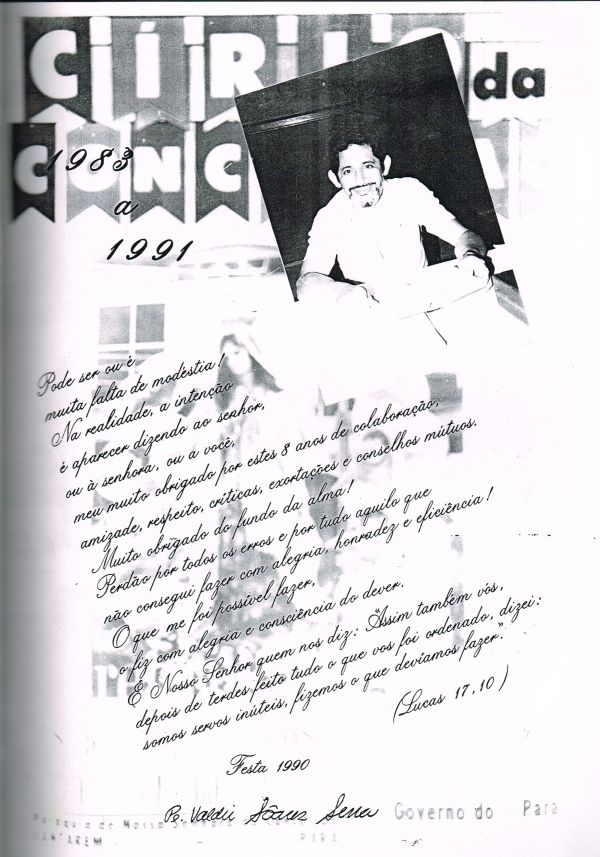 CÍRIO da
CONC A
1983
a
1991
Pode ser ou é
muita falta de modéstia!
Na realidade, a intenção
é aparecer dizendo ao senhor,
ou à senhora, ou à você,
meu muito obrigado por estes 8 anos de colaboração,
amizade, respeito, críticas, exortações e conselhos mútuos.
Muito obrigado do fundo da alma!
Perdão por todos os erros e por tudo aquilo que
não consegui fazer com alegria, honradez e eficiência!
O que me foi possível fazer,
o fiz com alegria e consciência do dever.
É Nosso Senhor quem nos diz: "Assim também vós,
depois de terdes feito tudo o que vos foi ordenado, dizei:
somos servos inúteis, fizemos o que devíamos fazer."
(Lucas 17,10)
Festa 1990
Pe. Valdir Serra
Governo do Pará
de Nossa
SANTAREM PARÁ